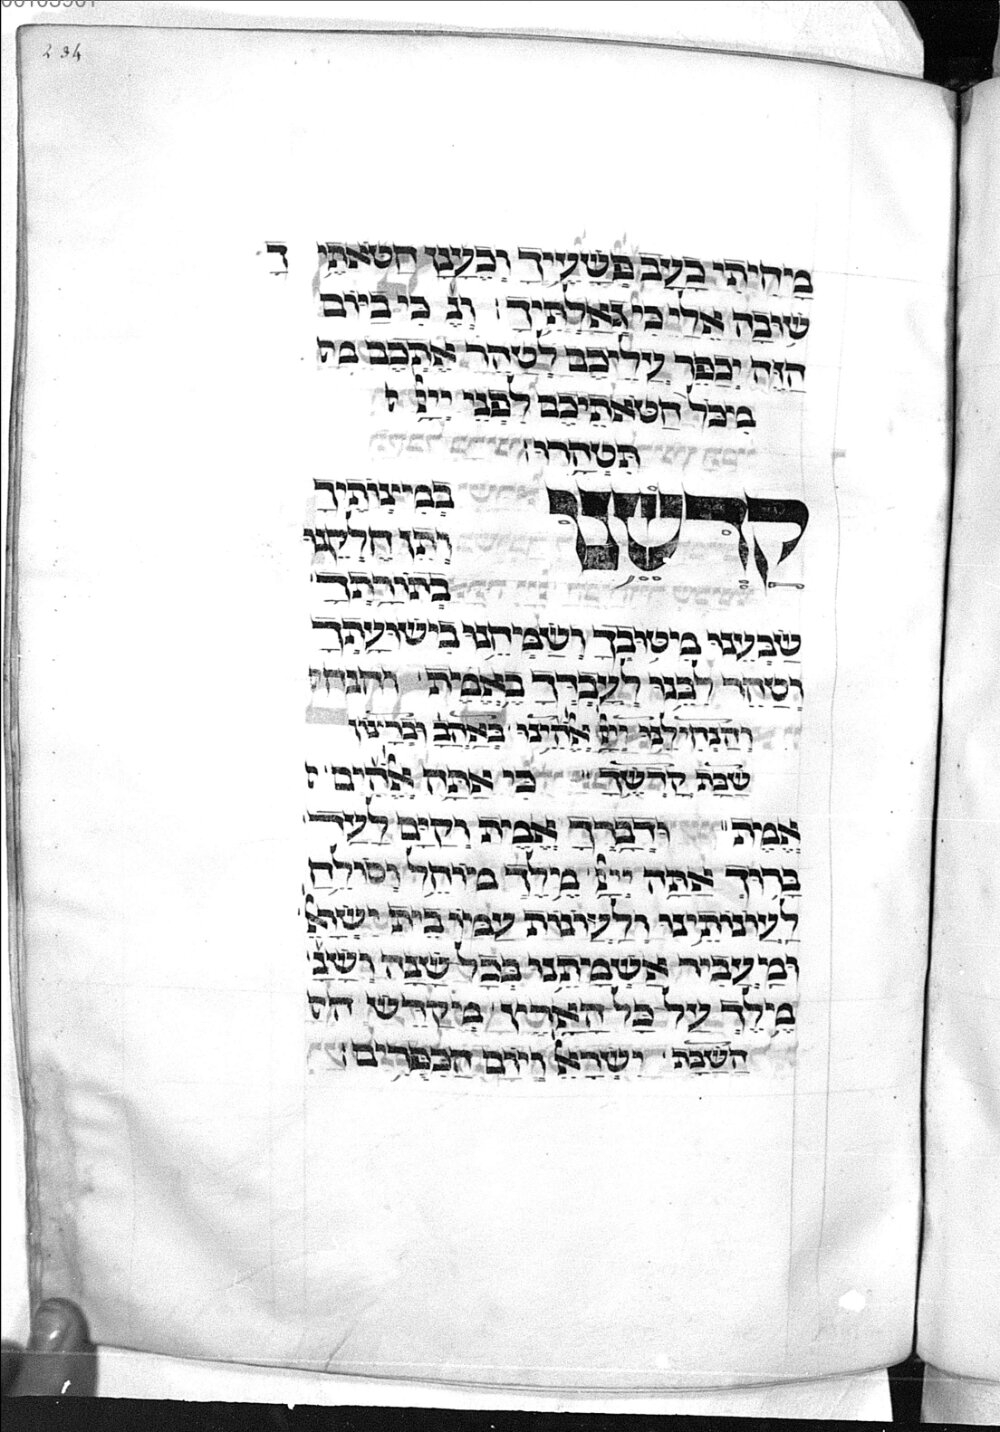 234
מָחִיתִי כָעָב פְּשָׁעֶיךָ וְכֶעָנָן חַטֹּאתֶי ךָ
שׁוּבָה אֵלַי כִּי גְאַלְתִּיךָ׃ וְנֶ׳ כִּי בַיּוֹם
הַזֶּה יְכַפֵּר עֲלֵיכֶם לְטַהֵר אֶתְכֶם מִ
מִכֹּל חַטֹּאתֵיכֶם לִפְנֵי יְיָ׳
תִּטְהָרוּ׃
קַדְּשֵׁנוּ בְּמִיצְוֹתֶיךָ
וְתֵן חֶלְקֵנוּ
בְּתוֹרָתֶךָ׳
שַׂבְּעֵנוּ מִיטּוּבֶךָ וְשַׂמְּחֵנוּ בִּישׁוּעָתֶךָ
וְטַהֵר לִבֵּנוּ לְעָבְדְּךָ בֶּאֱמֶית׳ והנחי
וְהַנְחִילֵנוּ יְיָ׳ אֱלֹהֵינוּ בְּאַהֲבָ׳ וּבְרָצוֹן
שַׁבַּת קָדְשֶׁךָ׳ כִּי אַתָּה אֱלֹהִים
אֱמֶת׳ וּדְבָרְךָ אֱמֶית וְקַיָּם לָעַד׳
בָּרוּךְ אַתָּה יְיָ׳ מֶלֶךְ מוֹחֵל וְסוֹלֵחַ
לַעֲווֹנוֹתֵינוּ וְלַעֲווֹנוֹת עַמּוֹ בֵּית יִשְׂרָאֵ׳
וּמַעֲבִיר אַשְׁמֵיתֵנוּ בְּכָל שָׁנָה וְשָׁנָ׳
מֶילֶךְ עַל כָּל הָאָרֶץ׳ מְקַדֵּשׁ
הַשַּׁבָּת׳ יִשְׂרָאֵ׳ וְיוֹם הַכִּפֻּרִים׃